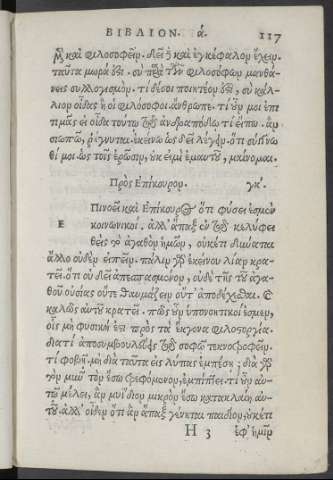 ΒΙΒΛΙΟΝ· ά. 117
καὶ φιλοσοφεῖν. δεῖ δὲ καὶ ἐγκέφαλον ἔχειν.
ταῦτα μωρά ἐστι. σὺ παρὰ τῶν φιλοσόφων μανθά
νεις συλλογισμόν. τί δέ σοι ποιητέον ἐστί, σὺ κάλ-
λιον οἶδας ἢ οἱ φιλόσοφοι ἄνθρωπε. τί οὖν μοι ἐπι
τιμᾷς εἰ οἶδα τούτω τῷ ἀνδραπόδω τί εἴπω. ἂν
σιωπῶ, ῥήγνυται. ἐκείνω ὡς δεῖ λέγειν. ὅτι σύγγνω
θί μοι ὡς τοῖς ἐρῶσιν, οὐκ εἰμὶ ἐμαυτοῦ, μαίνομαι.
Πρὸς Επίκουρον. κγ΄.
Ε
Πινοεῖ καὶ Επίκουρος ὅτι φύσει ἐσμὲν
κοινωνικοί. ἀλλ' ἅπαξ ἐν τῷ κελύφει
θεὶς τὸ ἀγαθὸν ἡμῶν, οὐκέτι δύναται
ἄλλο οὐδὲν εἰπεῖν. πάλιν γὰρ ἐκείνου λίαν κρα-
τεῖ. ὅτι οὐ δεῖ ἀπεσπασμένον, οὐδὲν τῆς τοῦ ἀγα
θοῦ οὐσίας οὔτε θαυμάζειν οὔτ' ἀποδέχεσθαι. καὶ
καλῶς αὐτοῦ κρατεῖ. πῶς οὖν ὑπονοητικοί ἐσμεν,
οἷς μὴ φυσική ἐστι πρὸς τὰ ἔκγονα φιλοστοργία.
διατί ἀποσυμβουλεύεις τῷ σοφῷ τεκνοτροφεῖν.
τί φοβῇ μὴ διὰ ταῦτα εἰς λύπας ἐμπέσῃ. διὰ γὰρ
τὸν μῦν τὸν ἔσω τρεφόμενον, ἐμπίπτει. τί οὖν αὐ-
τῷ μέλει, ἂν μυίδιον μικρὸν ἔσω κατακλαίῃ αὐ-
τοῦ. ἀλλ' οἶδεν ὅτι ἂν ἅπαξ γένηται παιδίον, οὐκέτι
H 3 ἐφ' ἡμῖν